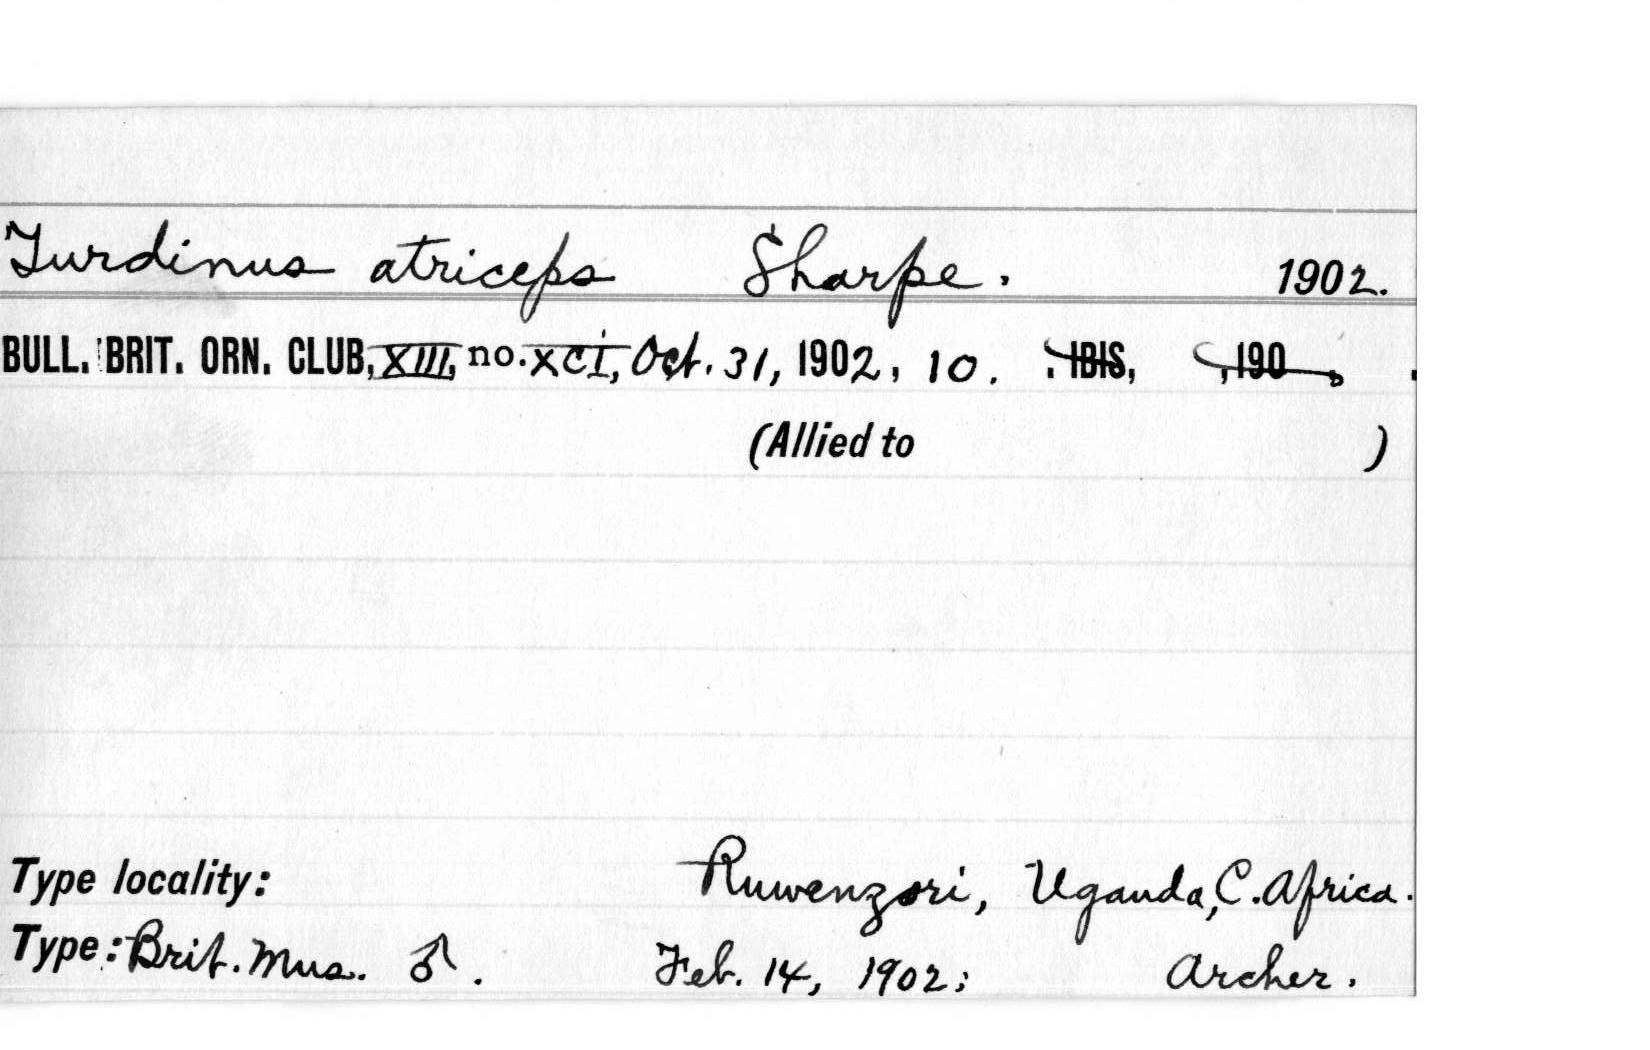 Turdinus atriceps Sharpe. 1902.
BULL. BRIT. ORN. CLUB, XIII, no. XCI, Oct. 31, 1902, 10. : IBIS, , 190 , .
(Allied to )
Type locality: Ruwenzori, Uganda, C. Africa.
Type: Brit. Mus. ♂. Feb. 14, 1902; Archer.